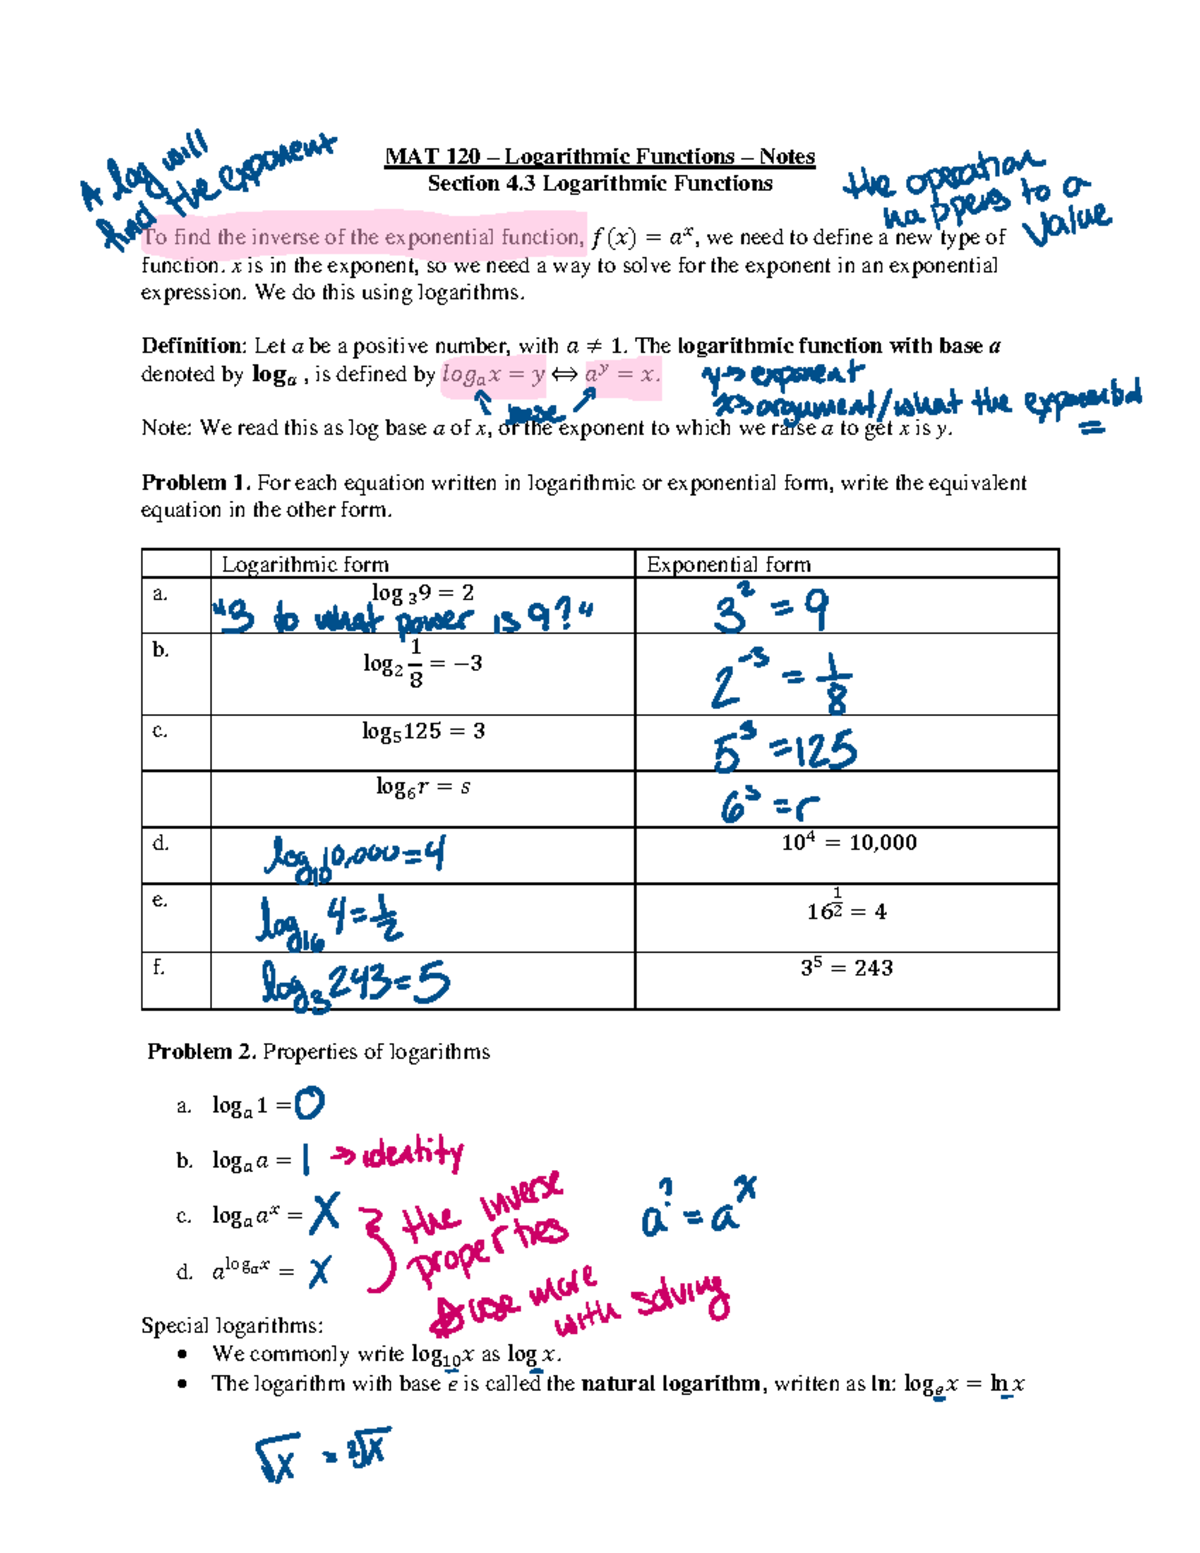 A log will
find the exponent
MAT 120 – Logarithmic Functions – Notes
Section 4.3 Logarithmic Functions
the operation
happens to a
value
To find the inverse of the exponential function, f(x) = aˣ, we need to define a new type of
function. x is in the exponent, so we need a way to solve for the exponent in an exponential
expression. We do this using logarithms.
Definition: Let a be a positive number, with a ≠ 1. The logarithmic function with base a
denoted by logₐ , is defined by logₐx = y ⟺ aʸ = x.
y → exponent
x → argument/what the exponential
=
base
Note: We read this as log base a of x, or the exponent to which we raise a to get x is y.
Problem 1. For each equation written in logarithmic or exponential form, write the equivalent
equation in the other form.
Logarithmic form Exponential form
a. log ₃9 = 2 3² = 9
"3 to what power is 9?"
b. log₂ 1/8 = −3 2⁻³ = 1/8
c. log₅125 = 3 5³ = 125
log₆r = s 6ˢ = r
d. log₁₀10,000 = 4 10⁴ = 10,000
e. log₁₆ 4 = 1/2 16^(1/2) = 4
f. log₃ 243 = 5 3⁵ = 243
Problem 2. Properties of logarithms
a. logₐ1 = 0
b. logₐa = 1 → identity
c. logₐaˣ = x
d. a^(logₐx) = x
} the inverse
properties
a^? = aˣ
use more
with solving
Special logarithms:
• We commonly write log₁₀x as log x.
• The logarithm with base e is called the natural logarithm, written as ln: logₑx = ln x
√x = ²√x